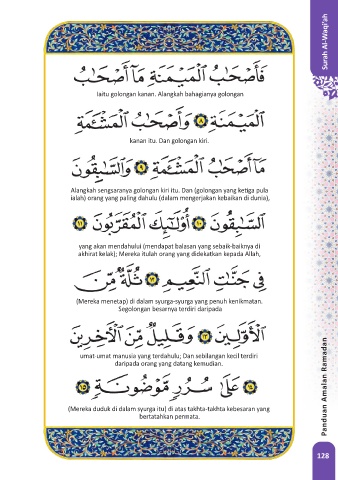 Surah Al-Waqi'ah
فَأَصْحَٰبُ ٱلْمَيْمَنَةِ مَآ أَصْحَٰبُ
Iaitu golongan kanan. Alangkah bahagianya golongan
ٱلْمَيْمَنَةِ ٨ وَأَصْحَٰبُ ٱلْمَشْـَٔمَةِ
kanan itu. Dan golongan kiri.
مَآ أَصْحَٰبُ ٱلْمَشْـَٔمَةِ ٩ وَٱلسَّٰبِقُونَ
Alangkah sengsaranya golongan kiri itu. Dan (golongan yang ketiga pula
ialah) orang yang paling dahulu (dalam mengerjakan kebaikan di dunia),
ٱلسَّٰبِقُونَ ١٠ أُو۟لَٰٓئِكَ ٱلْمُقَرَّبُونَ ١١
yang akan mendahului (mendapat balasan yang sebaik-baiknya di
akhirat kelak); Mereka itulah orang yang didekatkan kepada Allah,
فِى جَنَّٰتِ ٱلنَّعِيمِ ١٢ ثُلَّةٌ مِّنَ
(Mereka menetap) di dalam syurga-syurga yang penuh kenikmatan.
Segolongan besarnya terdiri daripada
ٱلْأَوَّلِينَ ١٣ وَقَلِيلٌ مِّنَ ٱلْءَاخِرِينَ
umat-umat manusia yang terdahulu; Dan sebilangan kecil terdiri
daripada orang yang datang kemudian.
١٤ عَلَىٰ سُرُرٍ مَّوْضُونَةٍ ١٥
(Mereka duduk di dalam syurga itu) di atas takhta-takhta kebesaran yang
bertatahkan permata.
Panduan Amalan Ramadan
128